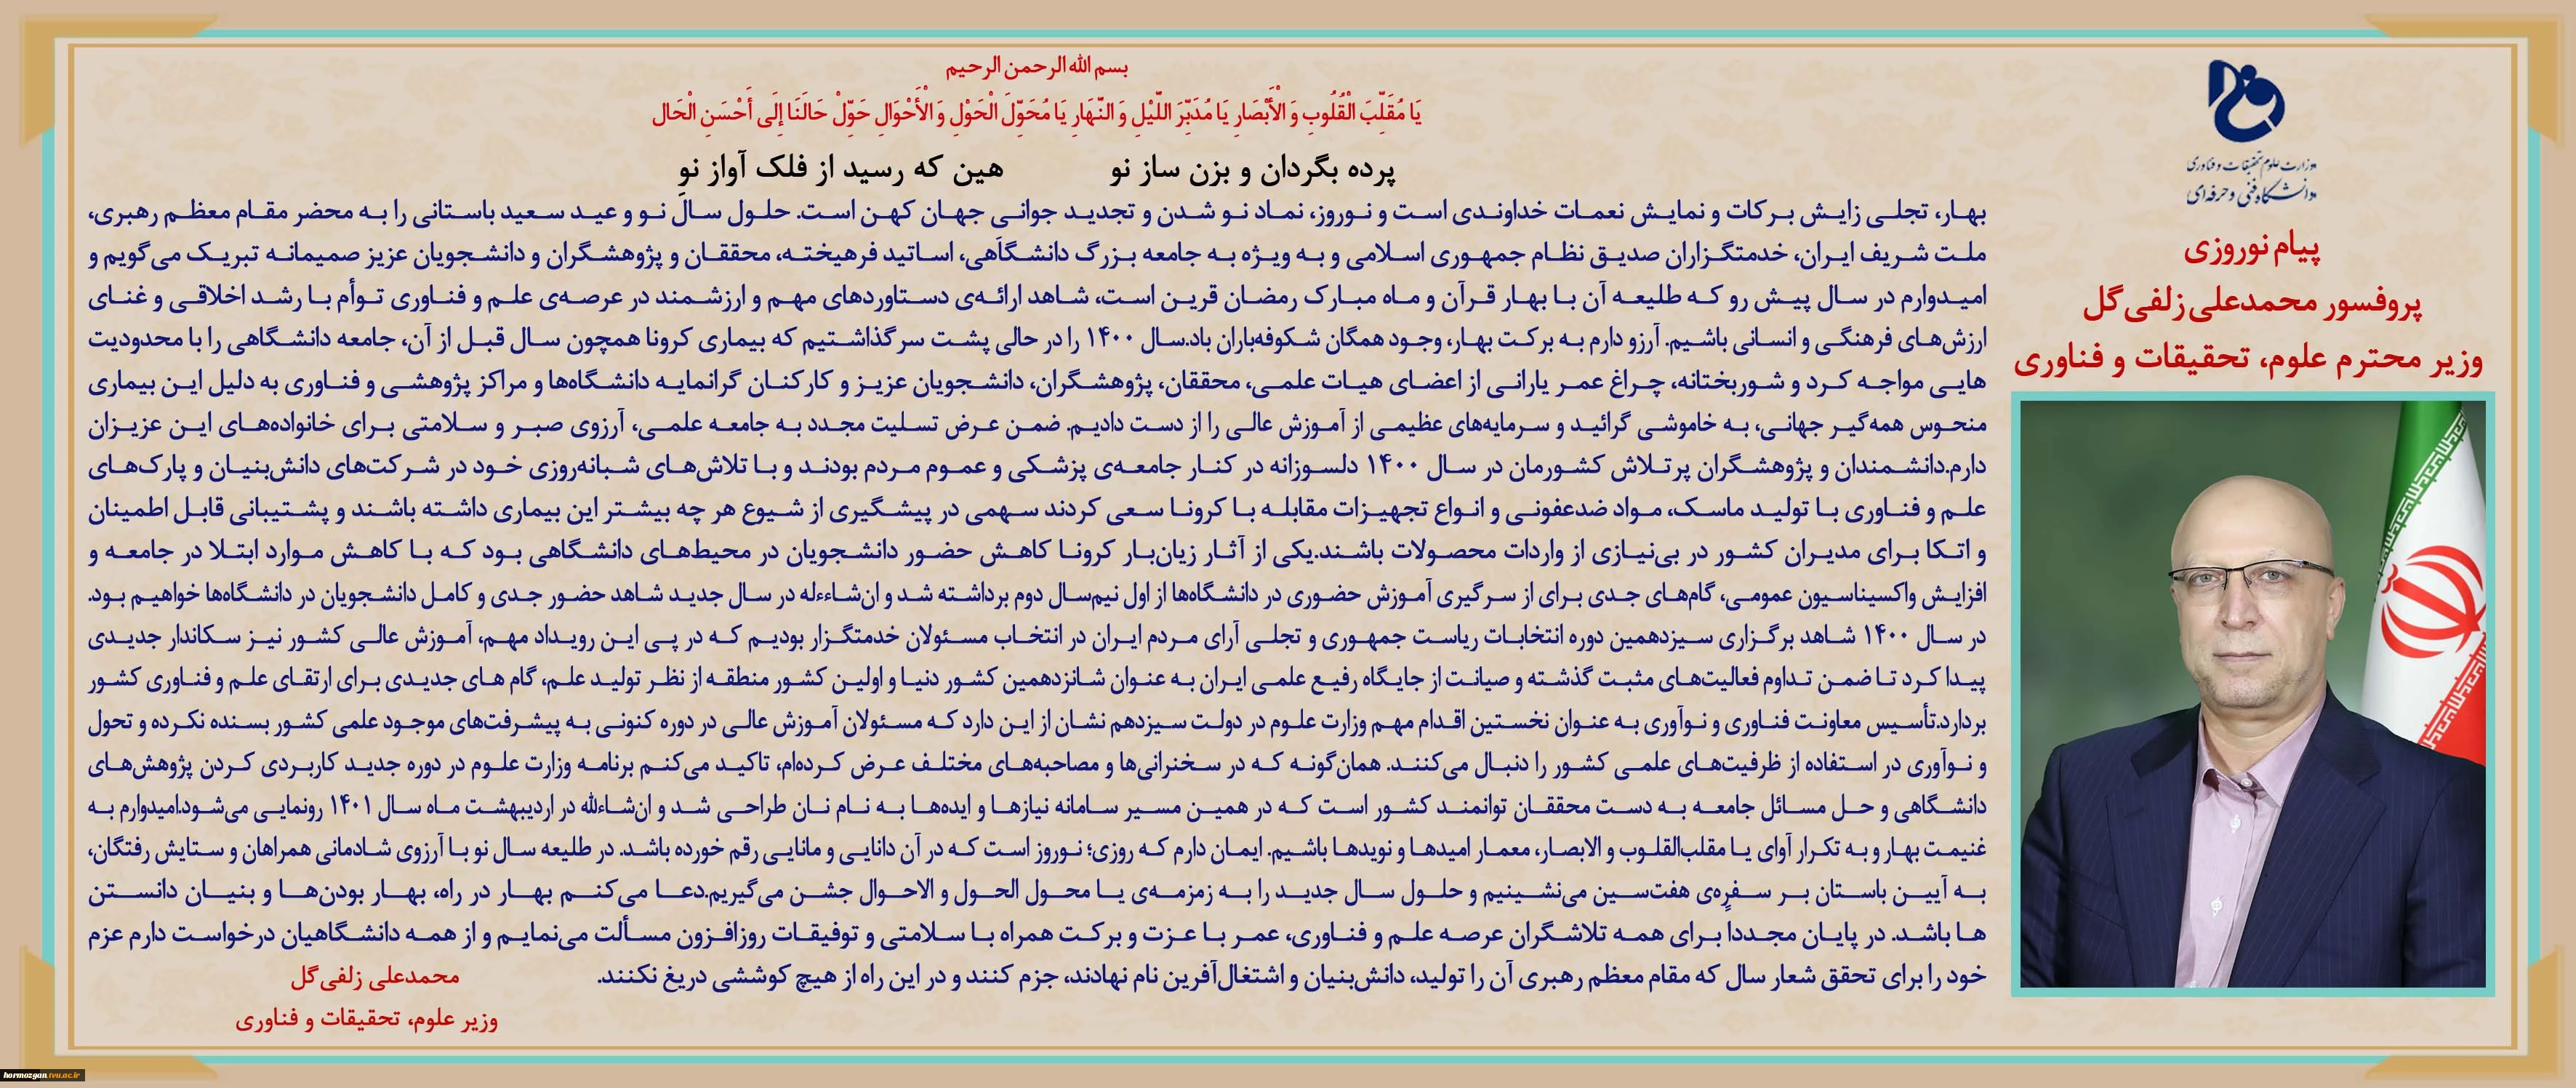 بسم الله الرحمن الرحیم
یَا مُقَلِّبَ الْقُلُوبِ وَ الْأَبْصَارِ یَا مُدَبِّرَ اللَّیْلِ وَ النَّهَارِ یَا مُحَوِّلَ الْحَوْلِ وَ الْأَحْوَالِ حَوِّلْ حَالَنَا إِلَى أَحْسَنِ الْحَال
پرده بگردان و بزن ساز نو هین که رسید از فلک آواز نو
وزارت علوم تحقیقات و فناوری
دانشگاه فنی و حرفه‌ای
پیام نوروزی
پروفسور محمدعلی زلفی گل
وزیر محترم علوم، تحقیقات و فناوری
بهار، تجلی زایش برکات و نمایش نعمات خداوندی است و نوروز، نماد نو شدن و تجدید جوانی جهان کهن است. حلول سال نو و عید سعید باستانی را به محضر مقام معظم رهبری،
ملت شریف ایران، خدمتگزاران صدیق نظام جمهوری اسلامی و به ویژه به جامعه بزرگ دانشگاهی، اساتید فرهیخته، محققان و پژوهشگران و دانشجویان عزیز صمیمانه تبریک می‌گویم و
امیدوارم در سال پیش رو که طلیعه آن با بهار قرآن و ماه مبارک رمضان قرین است، شاهد ارائه‌ی دستاوردهای مهم و ارزشمند در عرصه‌ی علم و فناوری توأم با رشد اخلاقی و غنای
ارزش‌های فرهنگی و انسانی باشیم. آرزو دارم به برکت بهار، وجود همگان شکوفه‌باران باد.سال ۱۴۰۰ را در حالی پشت سر گذاشتیم که بیماری کرونا همچون سال قبل از آن، جامعه دانشگاهی را با محدودیت
هایی مواجه کرد و شوربختانه، چراغ عمر یارانی از اعضای هیات علمی، محققان، پژوهشگران، دانشجویان عزیز و کارکنان گرانمایه دانشگاه‌ها و مراکز پژوهشی و فناوری به دلیل این بیماری
منحوس همه‌گیر جهانی، به خاموشی گرائید و سرمایه‌های عظیمی از آموزش عالی را از دست دادیم. ضمن عرض تسلیت مجدد به جامعه علمی، آرزوی صبر و سلامتی برای خانواده‌های این عزیزان
دارم.دانشمندان و پژوهشگران پرتلاش کشورمان در سال ۱۴۰۰ دلسوزانه در کنار جامعه‌ی پزشکی و عموم مردم بودند و با تلاش‌های شبانه‌روزی خود در شرکت‌های دانش‌بنیان و پارک‌های
علم و فناوری با تولید ماسک، مواد ضدعفونی و انواع تجهیزات مقابله با کرونا سعی کردند سهمی در پیشگیری از شیوع هر چه بیشتر این بیماری داشته باشند و پشتیبانی قابل اطمینان
و اتکا برای مدیران کشور در بی‌نیازی از واردات محصولات باشند.یکی از آثار زیان‌بار کرونا کاهش حضور دانشجویان در محیط‌های دانشگاهی بود که با کاهش موارد ابتلا در جامعه و
افزایش واکسیناسیون عمومی، گام‌های جدی برای از سرگیری آموزش حضوری در دانشگاه‌ها از اول نیم‌سال دوم برداشته شد و ان‌شاءءله در سال جدید شاهد حضور جدی و کامل دانشجویان در دانشگاه‌ها خواهیم بود.
در سال ۱۴۰۰ شاهد برگزاری سیزدهمین دوره انتخابات ریاست جمهوری و تجلی آرای مردم ایران در انتخاب مسئولان خدمتگزار بودیم که در پی این رویداد مهم، آموزش عالی کشور نیز سکاندار جدیدی
پیدا کرد تا ضمن تداوم فعالیت‌های مثبت گذشته و صیانت از جایگاه رفیع علمی ایران به عنوان شانزدهمین کشور دنیا و اولین کشور منطقه از نظر تولید علم، گام های جدیدی برای ارتقای علم و فناوری کشور
بردارد.تأسیس معاونت فناوری و نوآوری به عنوان نخستین اقدام مهم وزارت علوم در دولت سیزدهم نشان از این دارد که مسئولان آموزش عالی در دوره کنونی به پیشرفت‌های موجود علمی کشور بسنده نکرده و تحول
و نوآوری در استفاده از ظرفیت‌های علمی کشور را دنبال می‌کنند. همان‌گونه که در سخنرانی‌ها و مصاحبه‌های مختلف عرض کرده‌ام، تاکید می‌کنم برنامه وزارت علوم در دوره جدید کاربردی کردن پژوهش‌های
دانشگاهی و حل مسائل جامعه به دست محققان توانمند کشور است که در همین مسیر سامانه نیازها و ایده‌ها به نام نان طراحی شد و ان‌شاءالله در اردیبهشت ماه سال ۱۴۰۱ رونمایی می‌شود.امیدوارم به
غنیمت بهار و به تکرار آوای یا مقلب‌القلوب و الابصار، معمار امیدها و نویدها باشیم. ایمان دارم که روزی؛ نوروز است که در آن دانایی و مانایی رقم خورده باشد. در طلیعه سال نو با آرزوی شادمانی همراهان و ستایش رفتگان،
به آیین باستان بر سفره‌ی هفت‌سین می‌نشینیم و حلول سال جدید را به زمزمه‌ی یا محول الحول و الاحوال جشن می‌گیریم.دعا می‌کنم بهار در راه، بهار بودن‌ها و بنیان دانستن
ها باشد. در پایان مجددا برای همه تلاشگران عرصه علم و فناوری، عمر با عزت و برکت همراه با سلامتی و توفیقات روزافزون مسألت می‌نمایم و از همه دانشگاهیان درخواست دارم عزم
خود را برای تحقق شعار سال که مقام معظم رهبری آن را تولید، دانش‌بنیان و اشتغال‌آفرین نام نهادند، جزم کنند و در این راه از هیچ کوششی دریغ نکنند.
محمدعلی زلفی گل
وزیر علوم، تحقیقات و فناوری
hormozgan.tvu.ac.ir